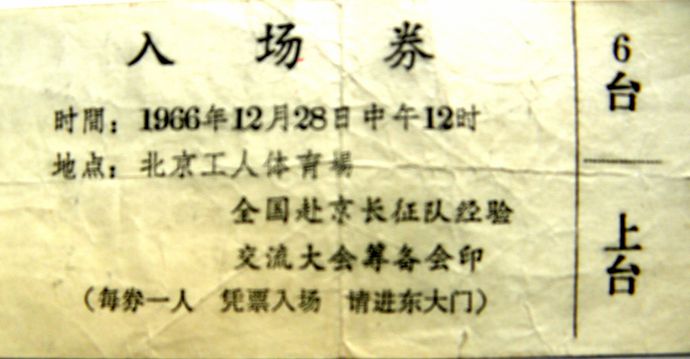 入场券
时間：1966年12月28日中午12时
地点：北京工人体育場
全国赴京长征队经验
交流大会筹备会印
（每券一人 凭票入场 请进东大门）
6台
上台